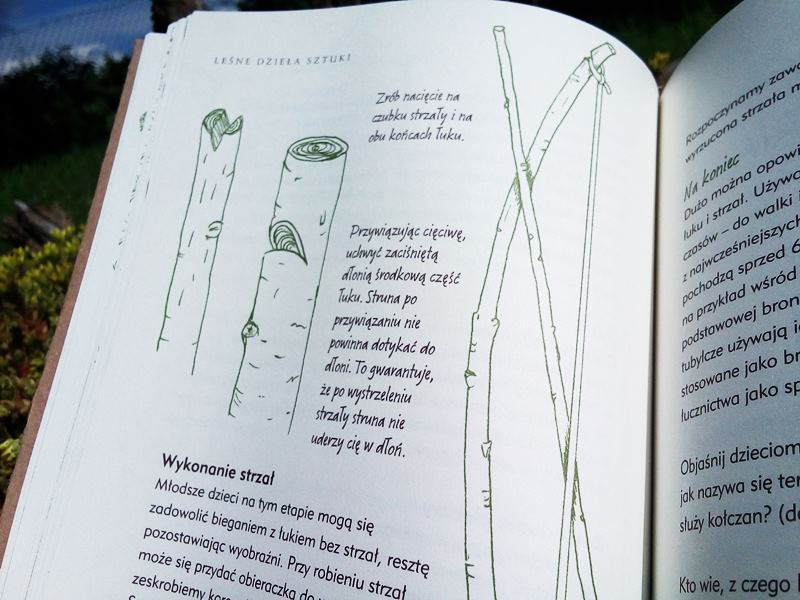 LEŚNE DZIEŁA SZTUKI
Zrób nacięcie na
czubku strzały i na
obu końcach łuku.
Przywiązując cięciwę,
uchwyć zaciśniętą
dłonią środkową część
łuku. Struna po
przywiązaniu nie
powinna dotykać do
dłoni. To gwarantuje,
że po wystrzeleniu
strzały struna nie
uderzy cię w dłoń.
Wykonanie strzał
Młodsze dzieci na tym etapie mogą się
zadowolić bieganiem z łukiem bez strzał, resztę
pozostawiając wyobraźni. Przy robieniu strzał
może się przydać obieraczka do
zeskrobiemy
Rozpoczynamy
wyrzucona strzała
Na koniec
Dużo można
łuku i strzał.
czasów – do walki
z najwcześniejszych
pochodzą sprzed
na przykład wśród
podstawowej
tubylcze używają
stosowane jako
łucznictwa jako
Objaśnij dzieciom
jak nazywa się
służy kołczan?
Kto wie, z czego